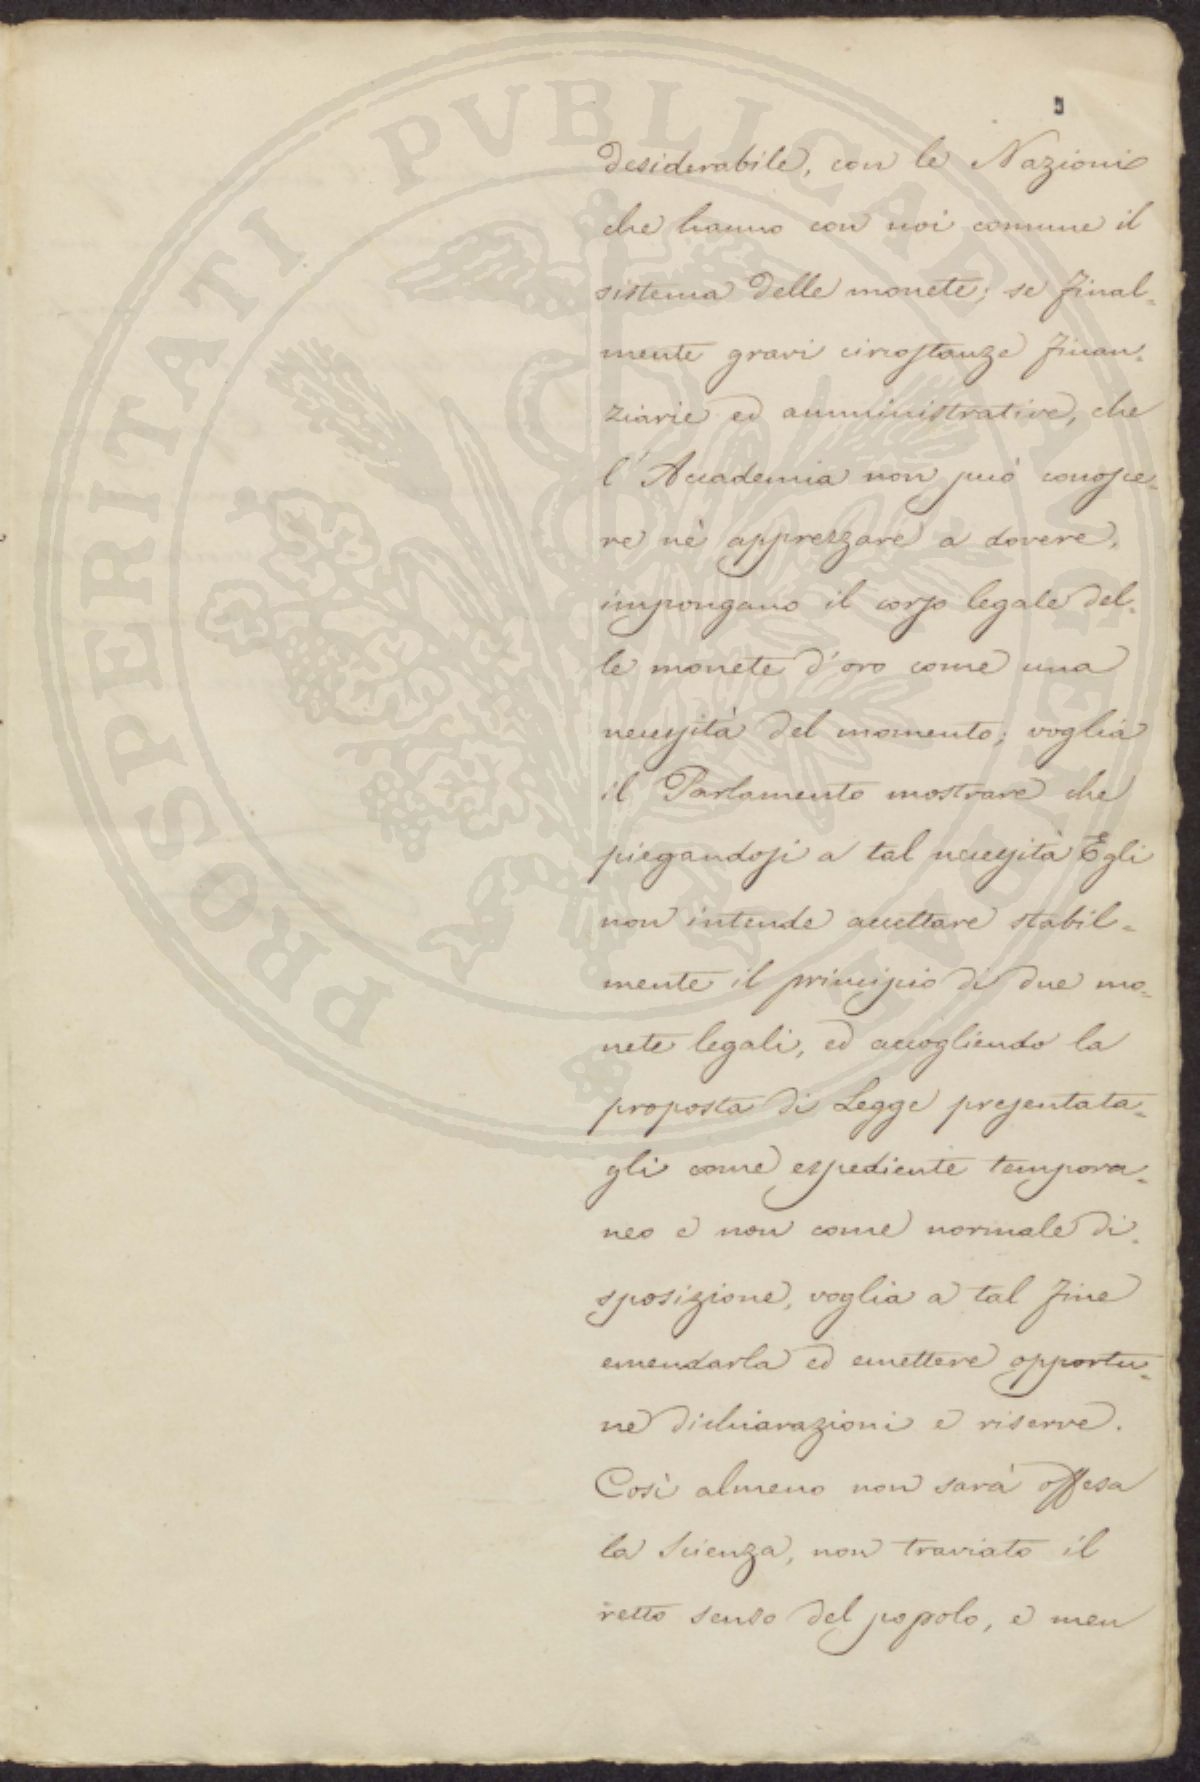 desiderabile, con le Nazioni
che hanno con noi comune il
sistema delle monete; se final-
mente gravi circostanze finan-
ziarie ed amministrative, che
l'Accademia non può conosce-
re nè apprezzare a dovere,
impongano il corso legale del-
le monete d'oro come una
necessità del momento; voglia
il Parlamento mostrare che
piegandosi a tal necessità Egli
non intende accettare stabil-
mente il principio di due mo-
nete legali, ed accogliendo la
proposta di Legge presentata-
gli come espediente tempora-
neo e non come normale di-
sposizione, voglia a tal fine
emendarla ed emettere opportu-
ne dichiarazioni e riserve.
Così almeno non sarà offesa
la Scienza, non traviato il
retto senso del popolo, e men
PROSPERITATI PVBLICAE AVGENDAE